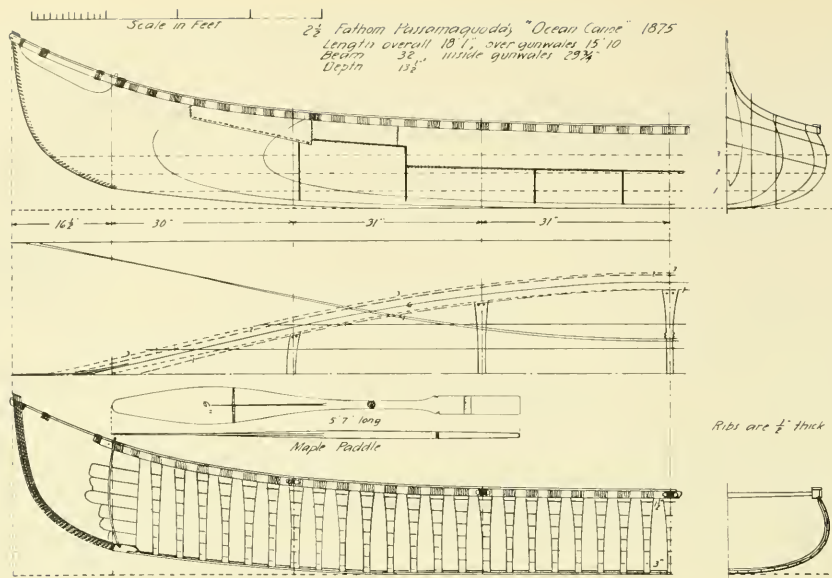 Scale in Feet
2½ Fathom Passamaquoddy "Ocean Canoe" 1875
Length overall 18'1", over gunwales 15'10
Beam 32", inside gunwales 29¾"
Depth 13½"
3
2
1
16½" 30" 31" 31"
5'7" long
Maple Paddle
Ribs are ½" thick
1½"
3"